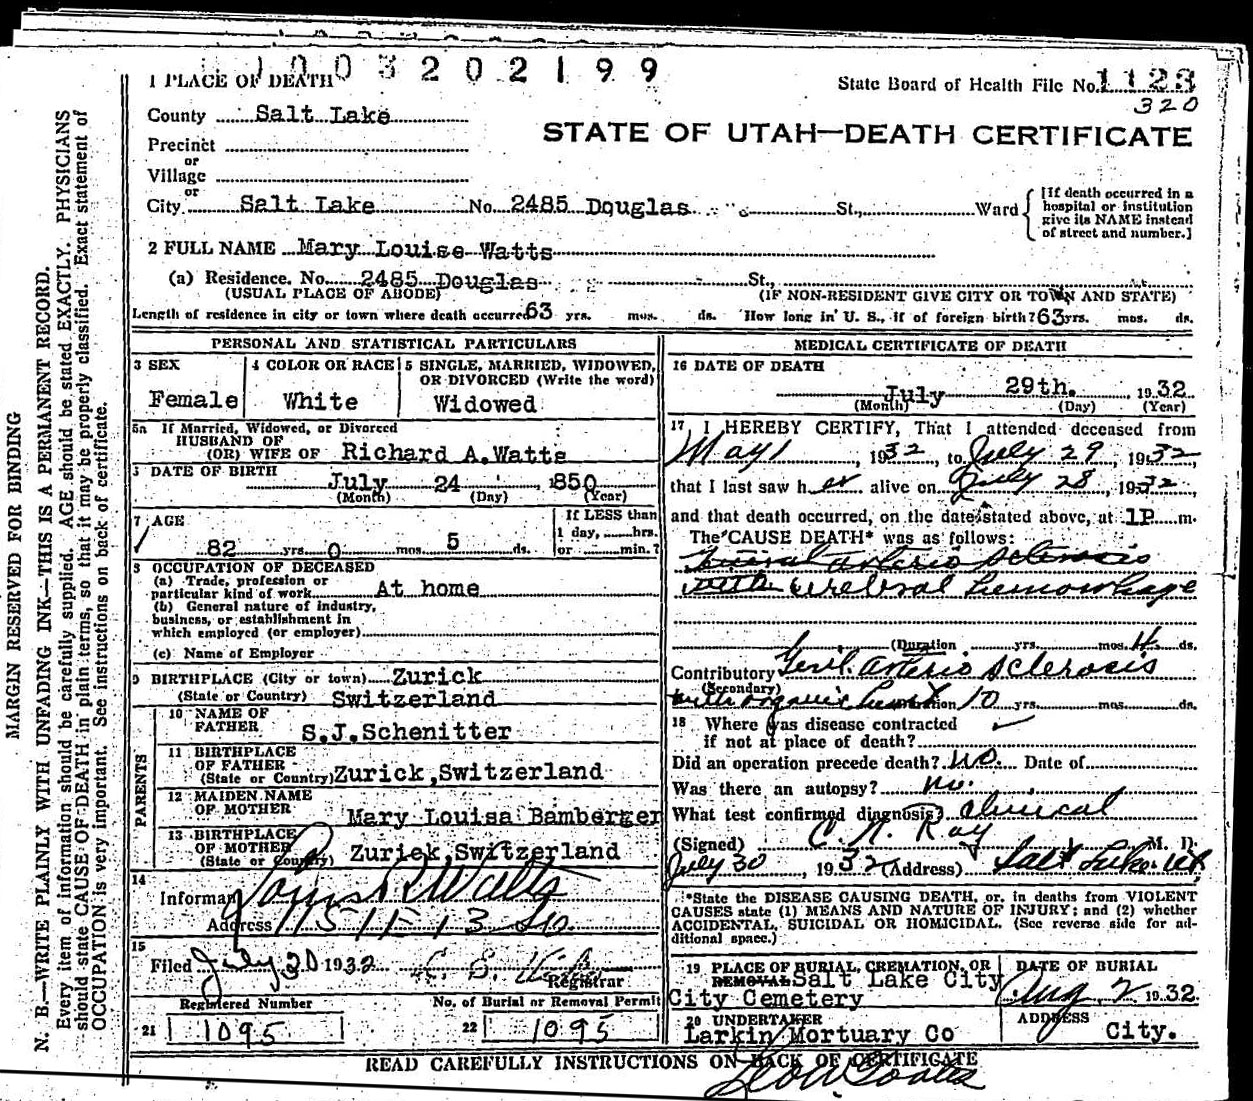 1003202199
1 PLACE OF DEATH
State Board of Health File No. 1123
320
County Salt Lake
STATE OF UTAH—DEATH CERTIFICATE
Precinct
or
Village
or
City Salt Lake No. 2485 Douglas St., Ward
[If death occurred in a
hospital or institution
give its NAME instead
of street and number.]
2 FULL NAME Mary Louise Watts
(a) Residence. No. 2485 Douglas St.,
(USUAL PLACE OF ABODE) (IF NON-RESIDENT GIVE CITY OR TOWN AND STATE)
Length of residence in city or town where death occurred 63 yrs. mos. ds. How long in U. S., if of foreign birth? 63 yrs. mos. ds.
PERSONAL AND STATISTICAL PARTICULARS
3 SEX
Female
4 COLOR OR RACE
White
5 SINGLE, MARRIED, WIDOWED,
OR DIVORCED (Write the word)
Widowed
5a If Married, Widowed, or Divorced
HUSBAND OF
(OR) WIFE OF Richard A.Watts
DATE OF BIRTH
July 24 1850
(Month) (Day) (Year)
7 AGE
82 yrs. 0 mos. 5 ds.
If LESS than
1 day, hrs.
or min.?
8 OCCUPATION OF DECEASED
(a) Trade, profession or
particular kind of work At home
(b) General nature of industry,
business, or establishment in
which employed (or employer)
(c) Name of Employer
9 BIRTHPLACE (City or town) Zurick
(State or Country) Switzerland
PARENTS
10 NAME OF
FATHER S.J.Schenitter
11 BIRTHPLACE
OF FATHER
(State or Country) Zurick,Switzerland
12 MAIDEN NAME
OF MOTHER Mary Louisa Bamberger
13 BIRTHPLACE
OF MOTHER
(State or Country) Zurick,Switzerland
14
Informant Louis R Watts
Address 1151 E 13 So.
15
Filed July 30 1932
Registrar
Registered Number No. of Burial or Removal Permit
21 1095 22 1095
MEDICAL CERTIFICATE OF DEATH
16 DATE OF DEATH
July 29th. 1932
(Month) (Day) (Year)
17 I HEREBY CERTIFY, That I attended deceased from
May 1, 1932, to July 29, 1932,
that I last saw her alive on July 28, 1932,
and that death occurred, on the date stated above, at 1P m.
The CAUSE DEATH* was as follows:
arterio sclerosis
with cerebral hemorrhage
(Duration yrs. mos. 4 ds.
Contributory Genl. arterio sclerosis
(Secondary)
with organic heart (Duration 10 yrs. mos. ds.
18 Where was disease contracted
if not at place of death?
Did an operation precede death? no. Date of
Was there an autopsy? no.
What test confirmed diagnosis? Clinical
(Signed) C. N. Ray M. D.
July 30, 1932 (Address) Salt Lake Ut.
*State the DISEASE CAUSING DEATH, or, in deaths from VIOLENT
CAUSES state (1) MEANS AND NATURE OF INJURY; and (2) whether
ACCIDENTAL, SUICIDAL OR HOMICIDAL. (See reverse side for ad-
ditional space.)
19 PLACE OF BURIAL, CREMATION, OR
REMOVAL Salt Lake City
City Cemetery
DATE OF BURIAL
Aug 2 1932
20 UNDERTAKER
Larkin Mortuary Co
ADDRESS
City.
READ CAREFULLY INSTRUCTIONS ON BACK OF CERTIFICATE
MARGIN RESERVED FOR BINDING
N. B.—WRITE PLAINLY WITH UNFADING INK—THIS IS A PERMANENT RECORD.
Every item of information should be carefully supplied. AGE should be stated EXACTLY. PHYSICIANS
should state CAUSE OF DEATH in plain terms, so that it may be properly classified. Exact statement of
OCCUPATION is very important. See instructions on back of certificate.